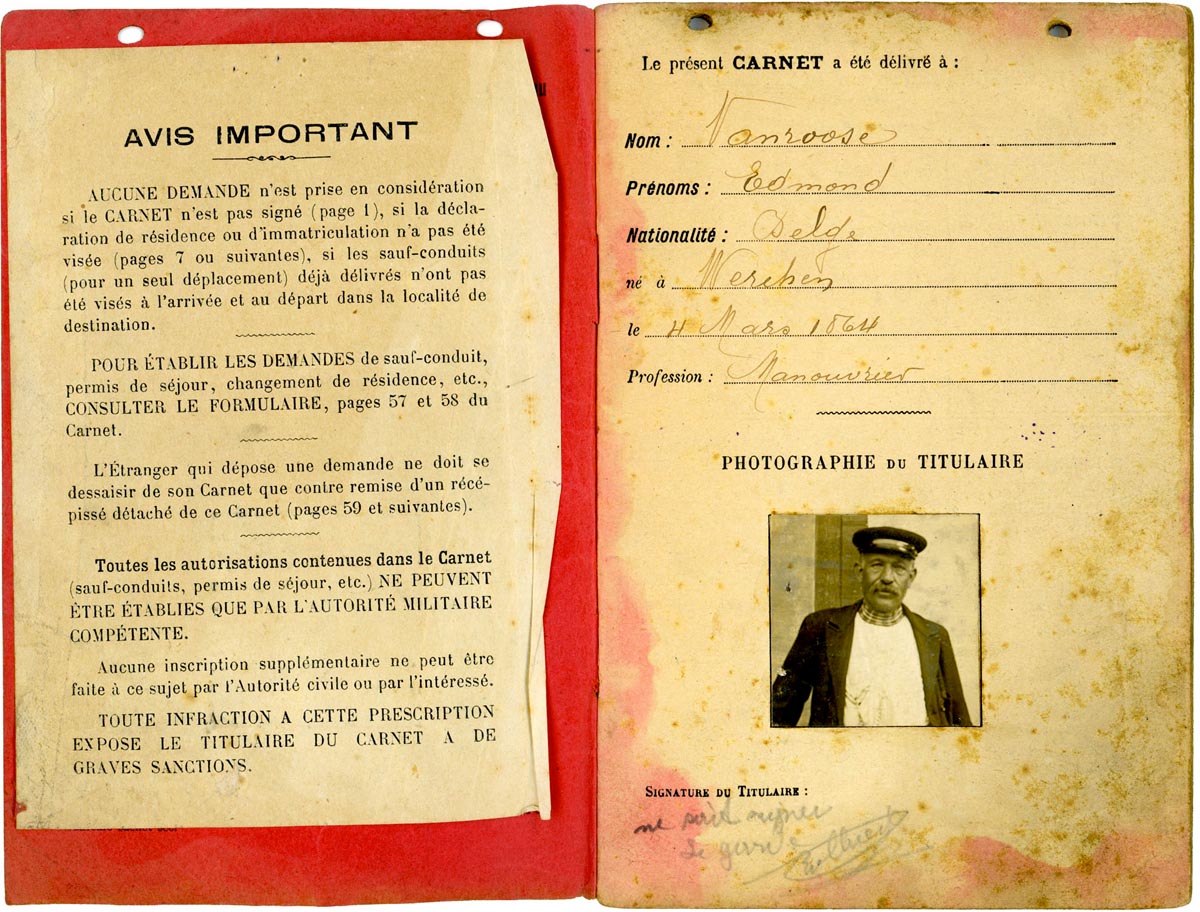 AVIS IMPORTANT
AUCUNE DEMANDE n'est prise en considération
si le CARNET n'est pas signé (page 1), si la décla-
ration de résidence ou d'immatriculation n'a pas été
visée (pages 7 ou suivantes), si les sauf-conduits
(pour un seul déplacement) déjà délivrés n'ont pas
été visés à l'arrivée et au départ dans la localité de
destination.
POUR ÉTABLIR LES DEMANDES de sauf-conduit,
permis de séjour, changement de résidence, etc.,
CONSULTER LE FORMULAIRE, pages 57 et 58 du
Carnet.
L'Étranger qui dépose une demande ne doit se
dessaisir de son Carnet que contre remise d'un récé-
pissé détaché de ce Carnet (pages 59 et suivantes).
Toutes les autorisations contenues dans le Carnet
(sauf-conduits, permis de séjour, etc.) NE PEUVENT
ÊTRE ÉTABLIES QUE PAR L'AUTORITÉ MILITAIRE
COMPÉTENTE.
Aucune inscription supplémentaire ne peut être
faite à ce sujet par l'Autorité civile ou par l'intéressé.
TOUTE INFRACTION A CETTE PRESCRIPTION
EXPOSE LE TITULAIRE DU CARNET A DE
GRAVES SANCTIONS.
Le présent CARNET a été délivré à :
Nom : Vanroose
Prénoms : Edmond
Nationalité : Belge
né à Werchen
le 4 Mars 1864
Profession : Manouvrier
PHOTOGRAPHIE DU TITULAIRE
SIGNATURE DU TITULAIRE :
ne sait signer
Le garde